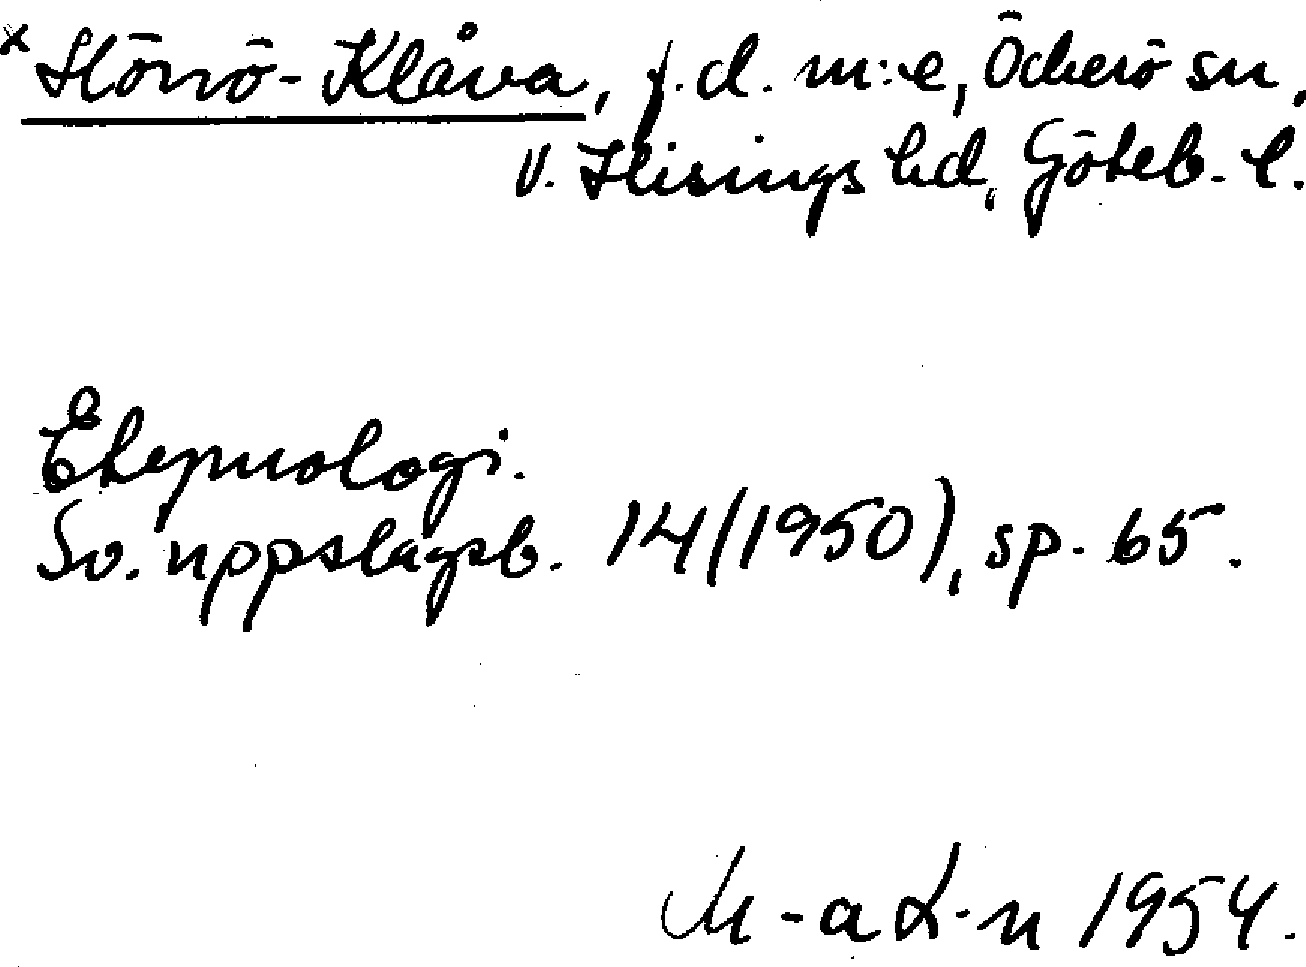 x Hönö-Klåva, f.d. m:e, Öckerö sn,
V. Hisings hd, Göteb. l.
Etymologi.
Sv. uppslagsb. 14 (1950), sp. 65.
M-a L-n 1954.